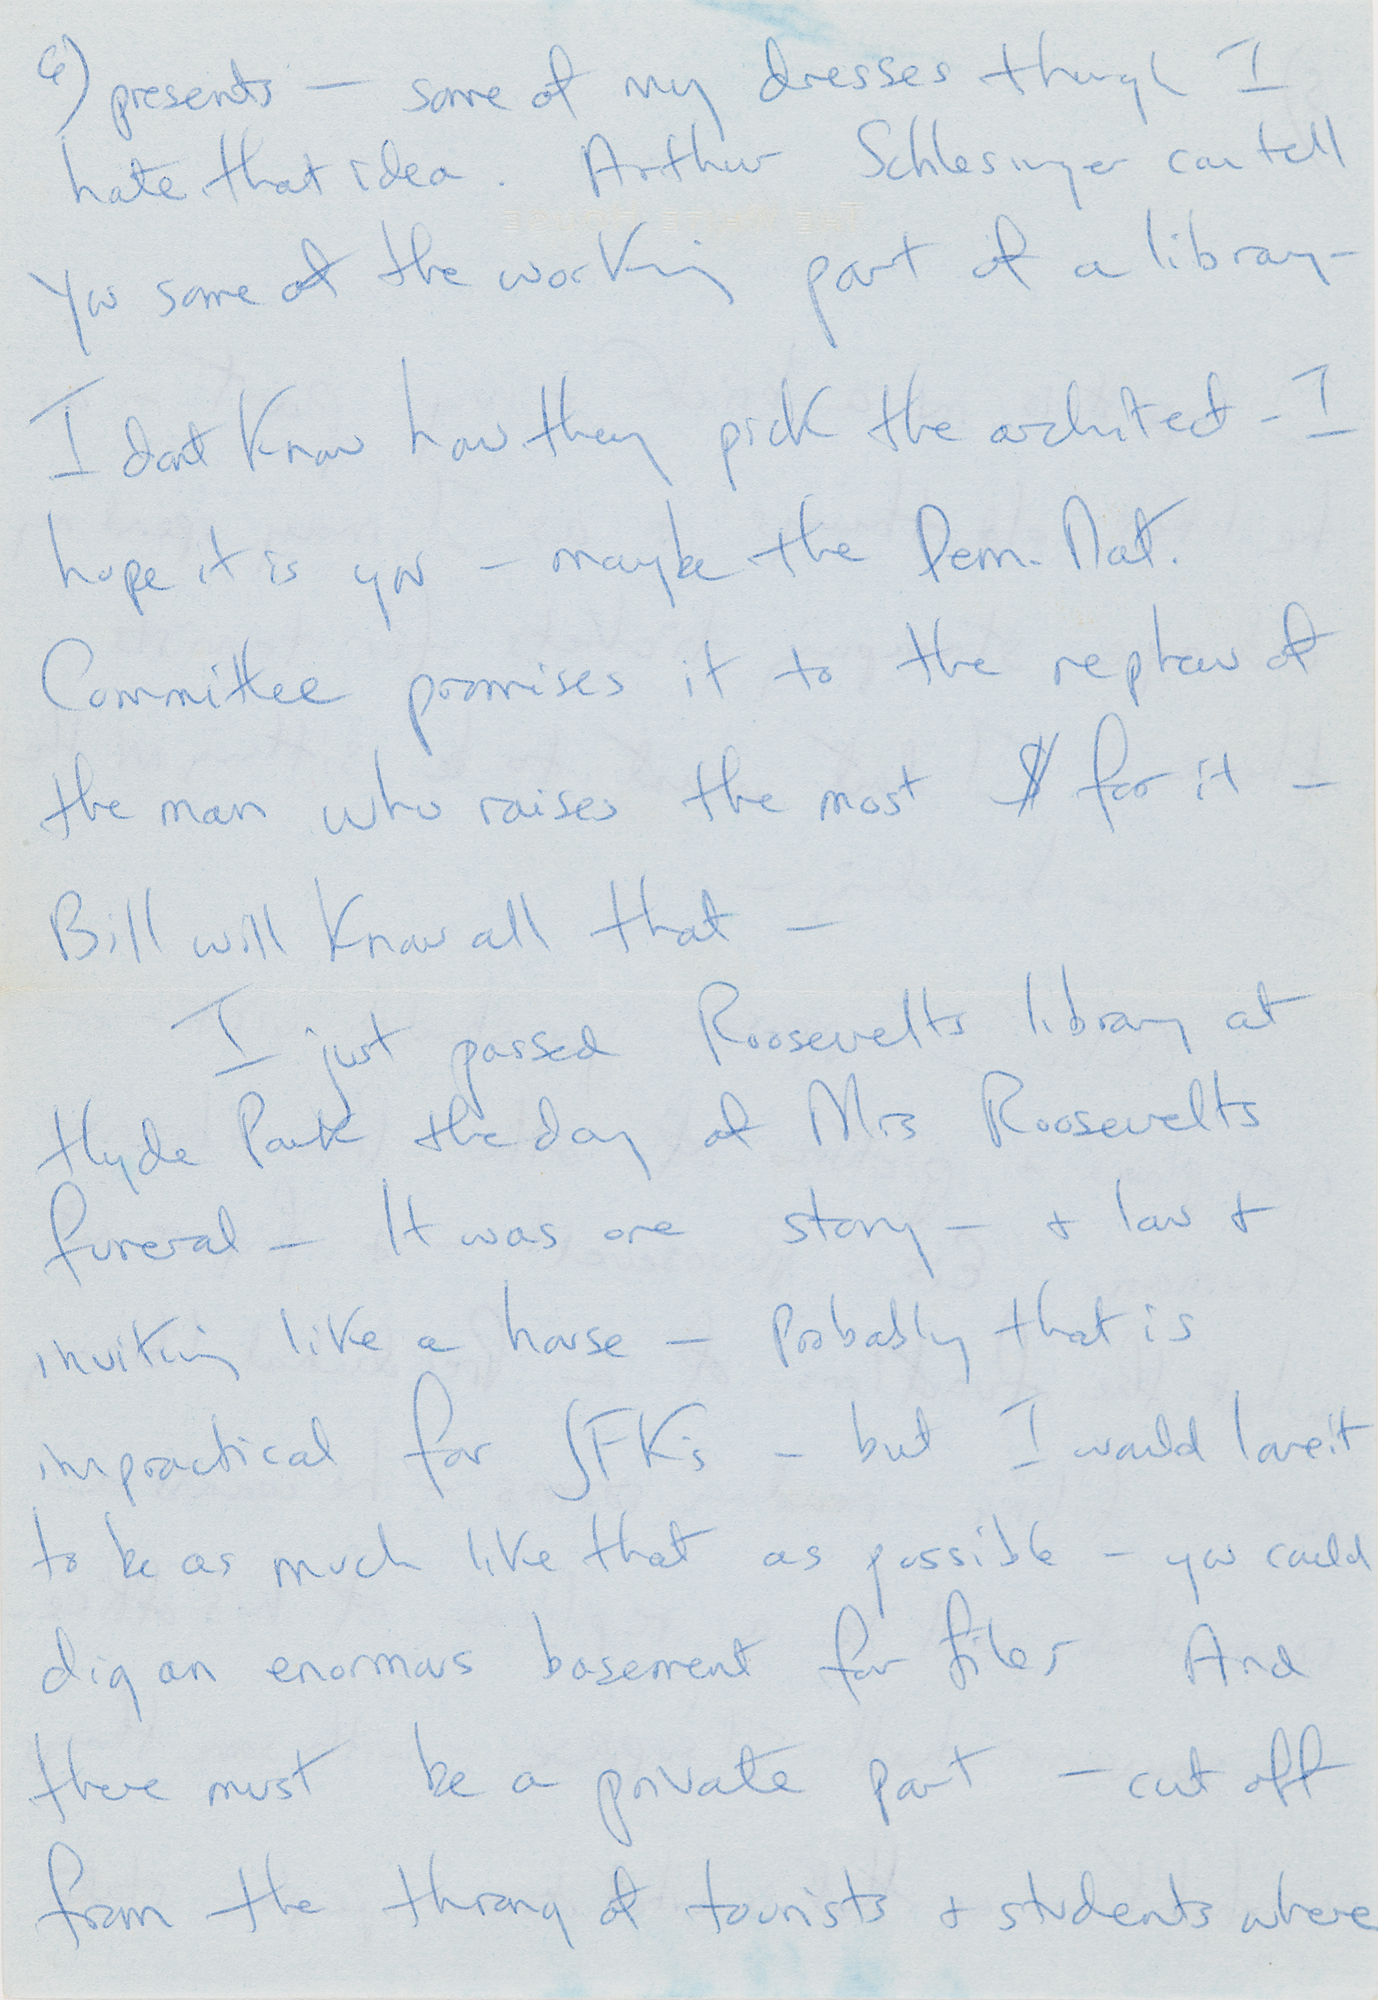 6) presents — some of my dresses though I
hate that idea. Arthur Schlesinger can tell
you some of the working part of a library —
I dont know how they pick the architect - I
hope it is you — maybe the Dem. Nat.
Committee promises it to the nephew of
the man who raises the most $ for it —
Bill will know all that —
I just passed Roosevelts library at
Hyde Park the day of Mrs Roosevelts
funeral — It was one story — + low +
inviting like a house — Probably that is
impractical for JFK's — but I would love it
to be as much like that as possible — you could
dig an enormous basement for files And
there must be a private part — cut off
from the throng of tourists + students where